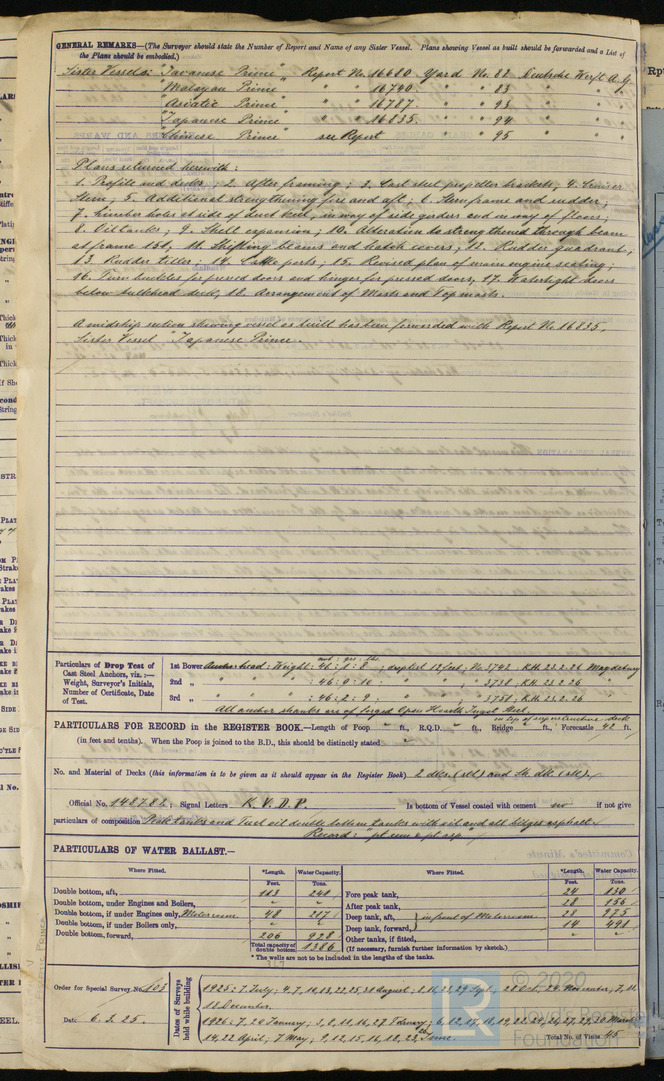 GENERAL REMARKS—(The Surveyor should state the Number of Report and Name of any Sister Vessel. Plans showing Vessel as built should be forwarded and a List of
the Plans should be embodied.)
Sister Vessels: "Javanese Prince" Report No. 16680 Yard No. 82 Deutsche Werft A.G.
"Malayan Prince" " " 16740 " " 83 " "
"Asiatic Prince" " " 16787 " " 93 " "
"Japanese Prince" " " 16835 " " 94 " "
"Chinese Prince" see Report " 95 "
Plans returned herewith:
1. Profile and decks; 2. After framing; 3. Cast steel propeller brackets; 4. Cruiser
Stern; 5. Additional strengthening fore and aft; 6. Sternframe and rudder;
7. Limber holes at side of duct keel, in way of side girders and in way of floors;
8. Oiltanks; 9. Shell expansion; 10. Alteration to strengthened through beam
at frame 151; 11. Shifting beams and hatch covers; 12. Rudder quadrant;
13. Rudder tiller; 14. Cattle ports; 15. Revised plan of main engine seating;
16. Turn buckles for pressed doors and hinges for pressed doors; 17. Watertight doors
below bulkhead deck; 18. Arrangement of Masts and Topmasts.
A midship section showing vessel as built has been forwarded with Report No. 16835,
Sister Vessel "Japanese Prince".
Particulars of Drop Test of
Cast Steel Anchors, viz.:—
Weight, Surveyor's Initials,
Number of Certificate, Date
of Test.
cwt : qrs : lbs
1st Bower Anchorhead: Weight: 46 : 1 : 8 ; droptest 12 feet, No. 3742, K.H. 23.2.26 Magdeburg
2nd " " " : 46 : 0 : 10 " " 3738, K.H. 23.2.26 "
3rd " " " : 46 : 2 : 9 " " 3751, K.H. 23.2.26 "
All anchor shanks are of forged Open Hearth Ingot Steel.
in top of superstructure deck
PARTICULARS FOR RECORD in the REGISTER BOOK.—Length of Poop " ft., R.Q.D. " ft., Bridge " ft., Forecastle 42 ft.
(in feet and tenths). When the Poop is joined to the B.D., this should be distinctly stated "
No. and Material of Decks (this information is to be given as it should appear in the Register Book) 2 dks (stl) and Sh. dk (stl).
Official No. 148782; Signal Letters K.V.D.P. Is bottom of Vessel coated with cement no if not give
particulars of composition Peak tanks and Fuel oil double bottom tanks with oil and all bilges asphalt.
Record: "pt cem & pt asp."
PARTICULARS OF WATER BALLAST.—
Where Fitted. *Length. Water Capacity. Where Fitted. *Length. Water Capacity.
Feet. Tons. Feet. Tons.
Double bottom, aft, 113 241 Fore peak tank, 24 130
Double bottom, under Engines and Boilers, " " After peak tank, 28 156
Double bottom, if under Engines only, Motorroom 48 217 Deep tank, aft, 28 975
Double bottom, if under Boilers only, " " Deep tank, forward, } in front of Motorroom 14 491
Double bottom, forward, 206 928 Other tanks, if fitted, " "
Total capacity of double bottom 1386 (If necessary, furnish further information by sketch.)
* The wells are not to be included in the lengths of the tanks.
Order for Special Survey No. 103
Date 6.3.25.
Dates of Surveys held while building
1925: 7 July; 4, 7, 10, 13, 22, 25, 31 August; 2, 11, 23, 29 Sept., 28 Oct., 24 November, 7, 11,
12 December.
1926: 7, 20 January; 3, 8, 11, 16, 27 February; 6, 12, 17, 18, 19, 22, 24, 26, 27, 29, 30 March
14, 22 April; 7 May; 9, 12, 15, 16, 18, 23, June.
Total No. of Visits 45
© 2020
Lloyd's Register
Foundation
LR